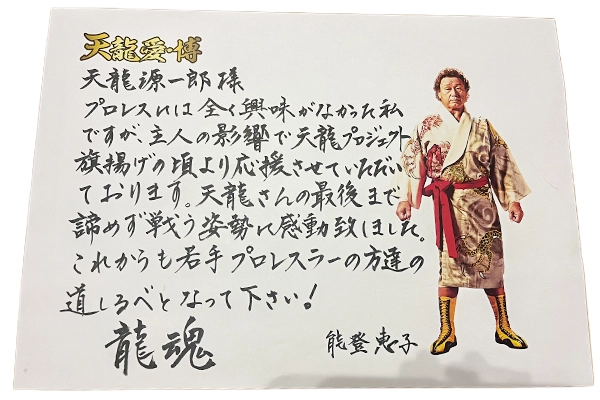 天龍愛・博
天龍源一郎様
プロレスには全く興味がなかった私
ですが、主人の影響で天龍プロジェクト
旗揚げの頃より応援させていただい
ております。天龍さんの最後まで
諦めず戦う姿勢に感動致しました。
これからも若手プロレスラーの方達の
道しるべとなって下さい！
龍魂
能登恵子